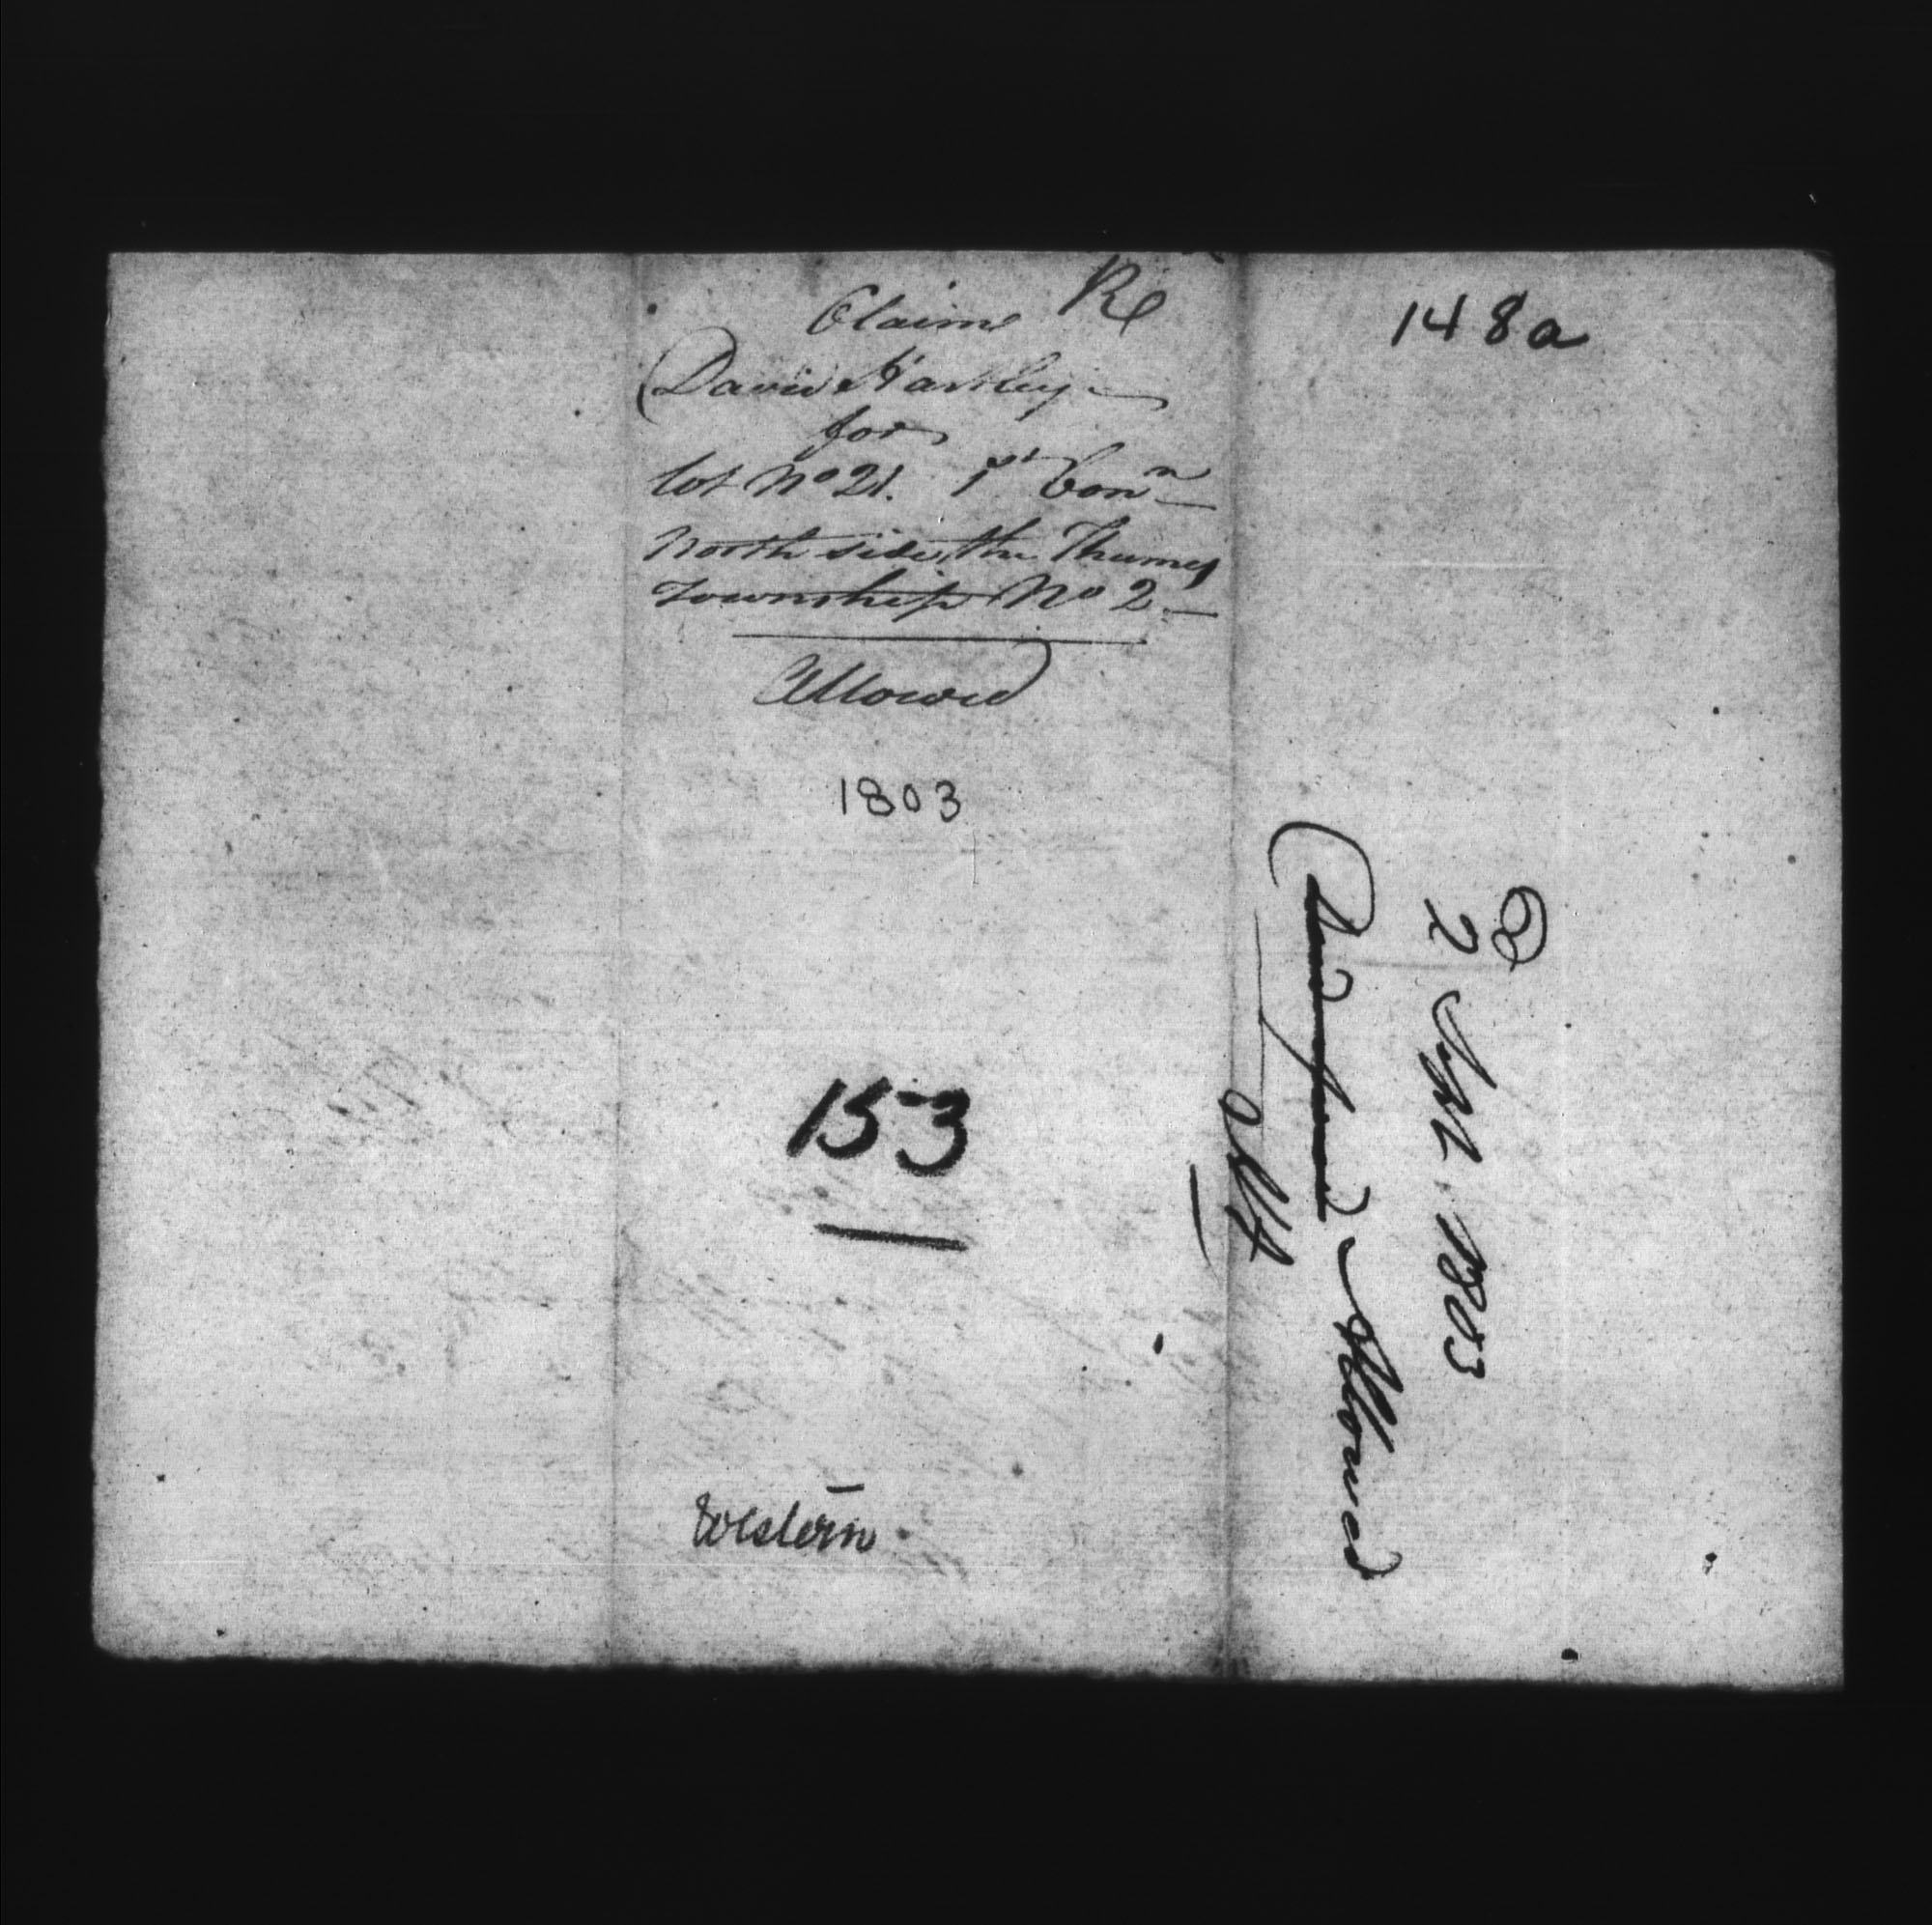 Claim Re
David Hartley
for
lot No 21. 1st Conn
North side the Thames
Township No 2
Allowed
1803
153
Western
148a
2 Sept. 1803
Allowed